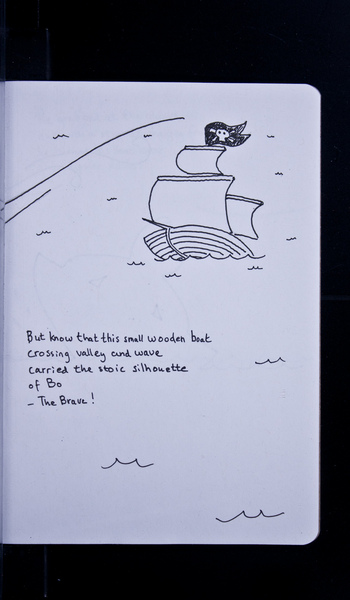 But know that this small wooden boat
crossing valley and wave
carried the stoic silhouette
of Bo
- The Brave!